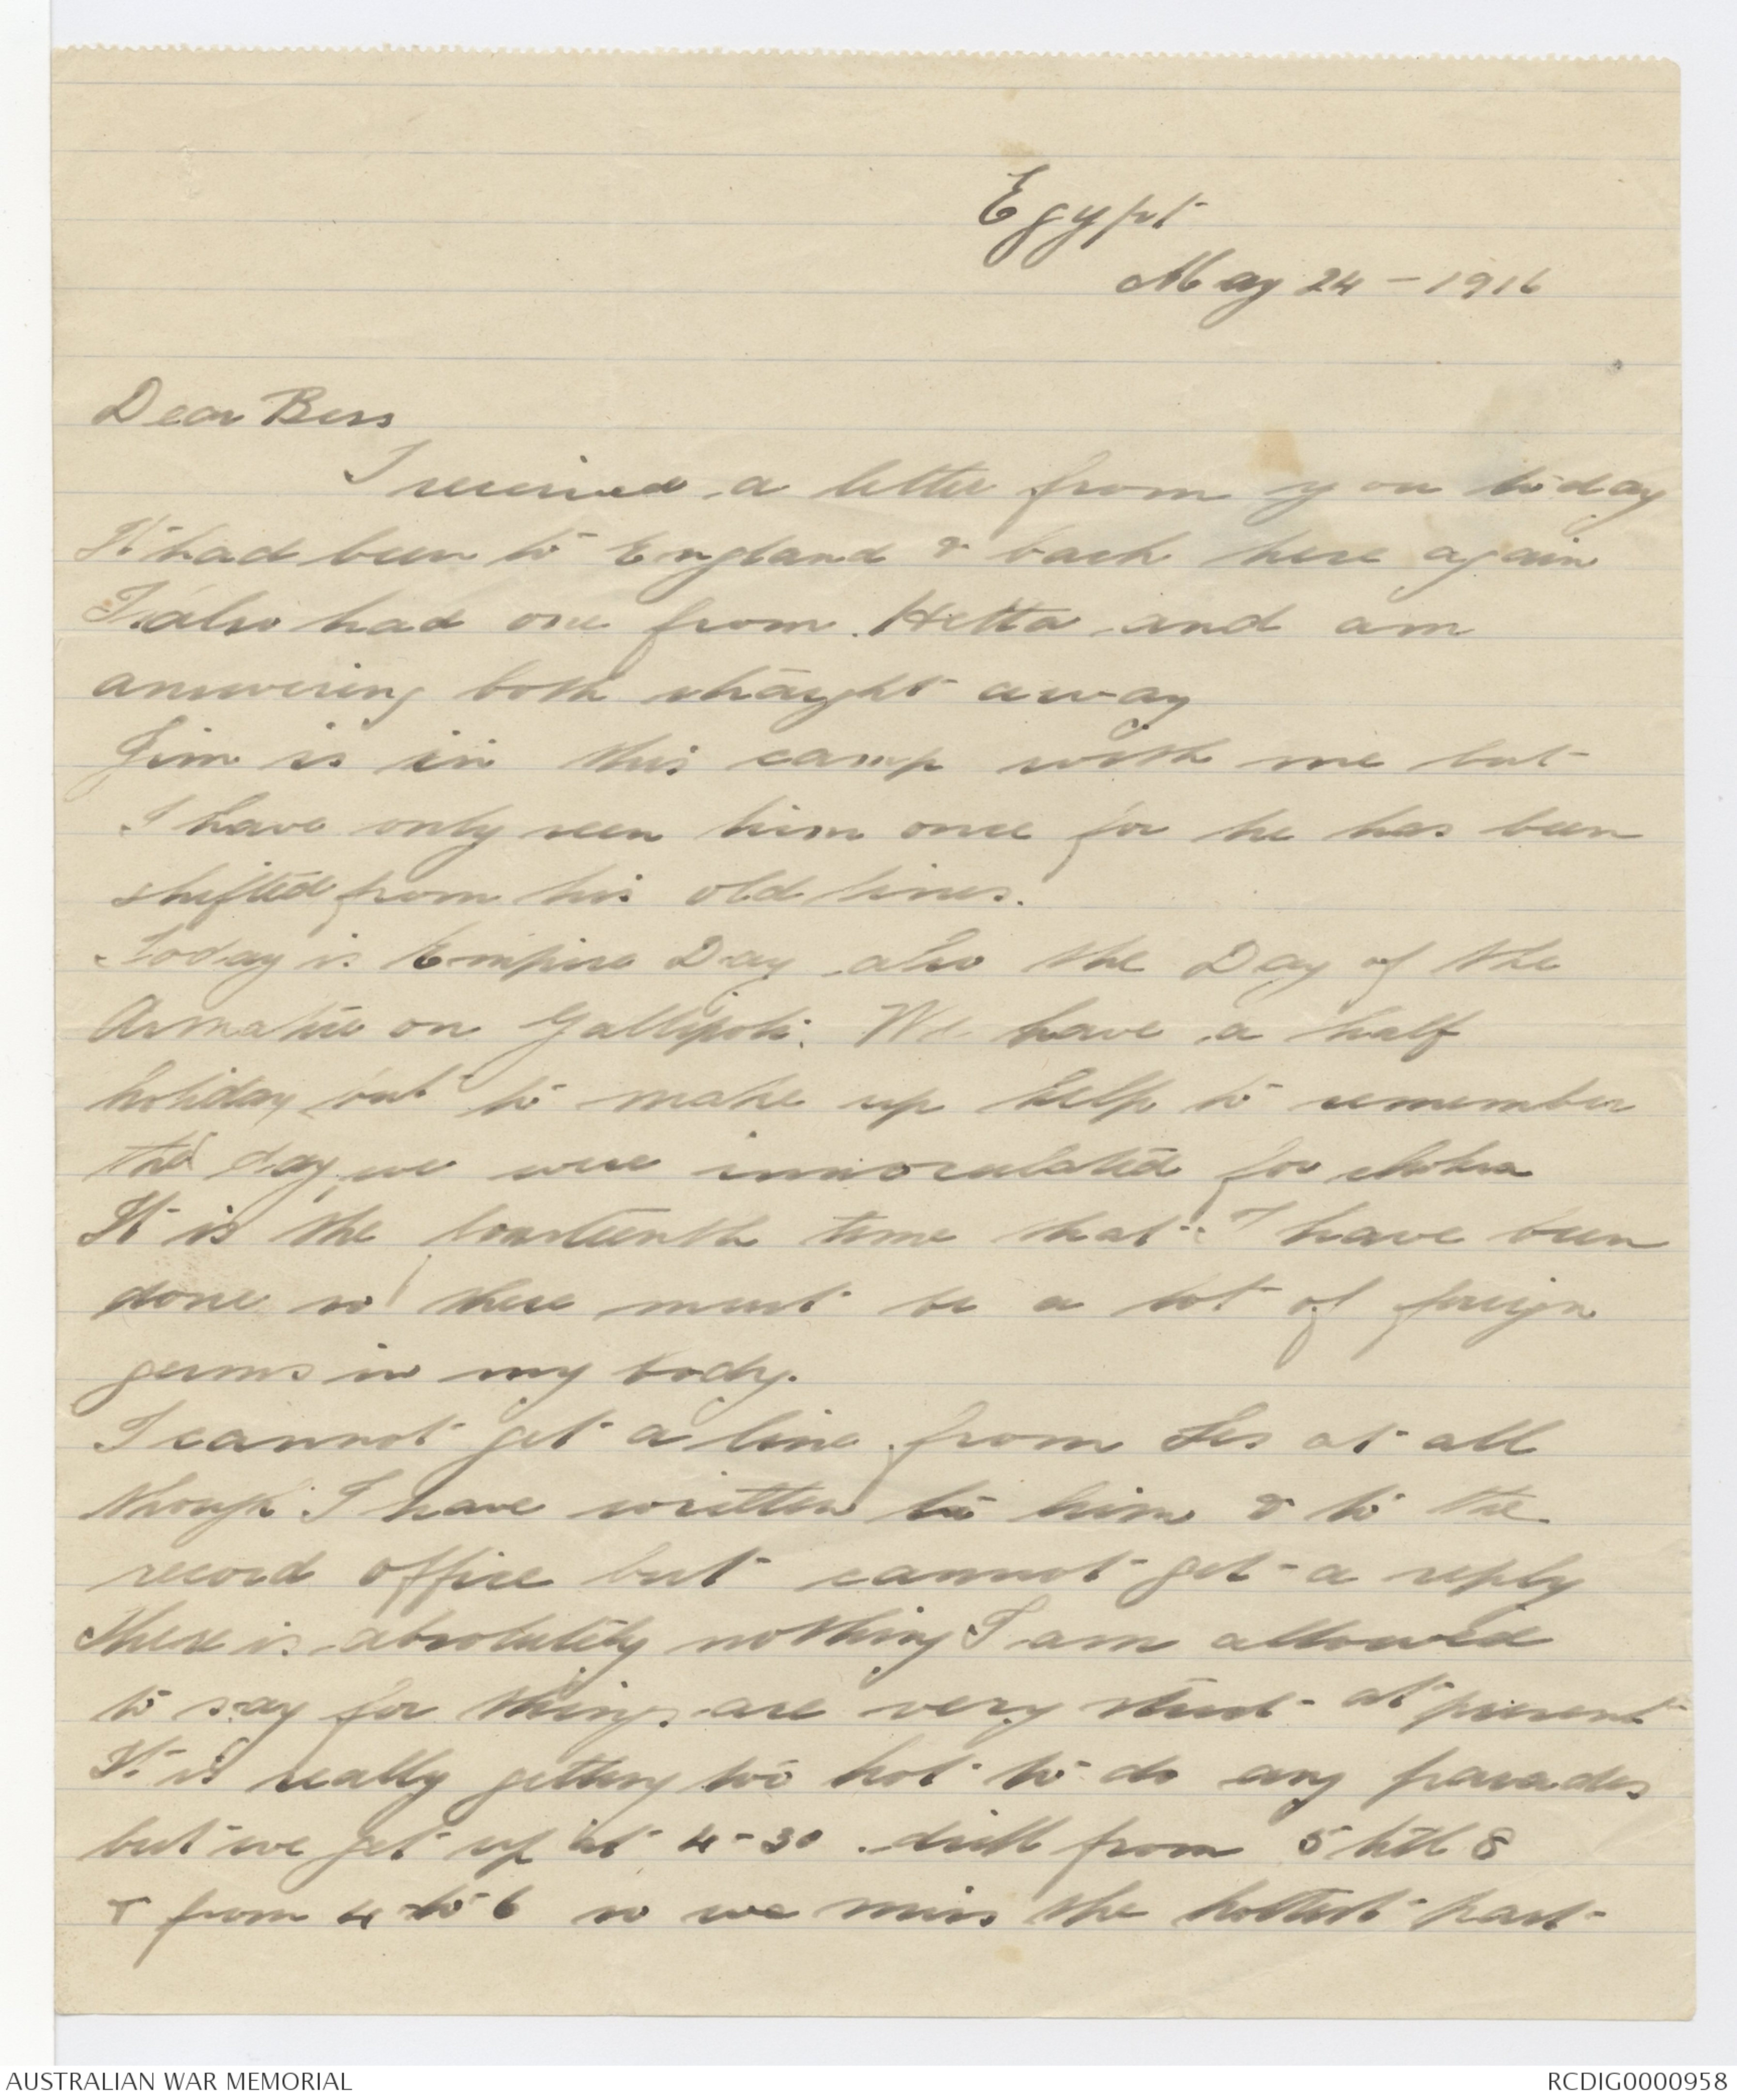 Egypt
May 24 - 1916
Dear Bess
I received a letter from you today
It had been to England & back here again
I also had one from Hetta and am
answering both straight away
Jim is in this camp with me but
I have only seen him once for he has been
shifted from his old lines.
Today is Empire Day also the Day of the
Armatice on Gallipoli. We have a half
holiday but to make up help to remember
the day we were innoculated for cholera
It is the fourteenth time that I have been
done so there must be a lot of foreign
germs in my body.
I cannot get a line from Les at all
though I have written to him & to the
record office but cannot get a reply
there is absolutely nothing I am allowed
to say for things are very strict at present
It is really getting too hot to do any parades
but we get up at 4-30 drill from 5 till 8
& from 4 to 6 so we miss the hottest part
AUSTRALIAN WAR MEMORIAL
RCDIG0000958